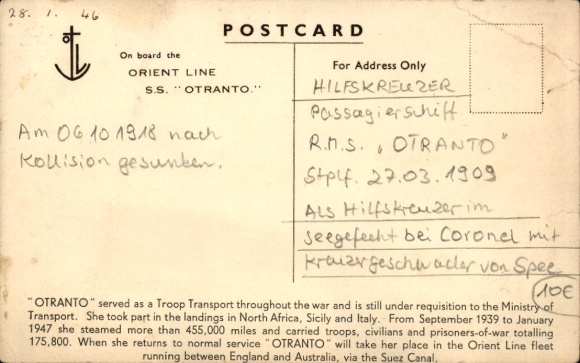 28. 1. 46
POSTCARD
On board the
ORIENT LINE
S.S. "OTRANTO."
Am 06 10 1918 nach
Kollision gesunken.
For Address Only
HILFSKREUZER
Passagierschiff
R.M.S. „OTRANTO"
Stplf. 27.03.1909
Als Hilfskreuzer im
Seegefecht bei Coronel mit
Kreuzergeschwader von Spee
10€
"OTRANTO" served as a Troop Transport throughout the war and is still under requisition to the Ministry of
Transport. She took part in the landings in North Africa, Sicily and Italy. From September 1939 to January
1947 she steamed more than 455,000 miles and carried troops, civilians and prisoners-of-war totalling
175,800. When she returns to normal service "OTRANTO" will take her place in the Orient Line fleet
running between England and Australia, via the Suez Canal.